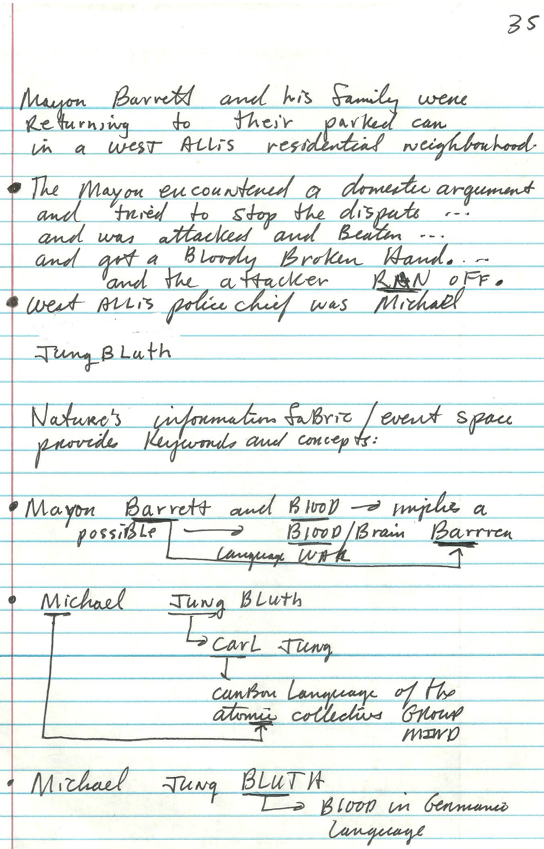 35
Mayor Barrett and his family were
Returning to their parked car
in a WEST ALLis residential neighbourhood.
• The Mayor encountered a domestic argument
and tried to stop the dispute ...
and was attacked and Beaten ...
and got a Bloody Broken Hand. ...
and the attacker RAN OFF.
• WEST ALLis police chief was Michael
Jung BLuth
Nature's information faBric / event space
provides Keywords and concepts:
• Mayor Barrett and BlooD → implies a
possiBLe → BlooD/Brain Barrren
Language WAR
• Michael Jung BLuth
CarL Jung
carBon Language of the
atomic collective GROUP
MIND
• Michael Jung BLUTH
BlooD in Germanic
Language